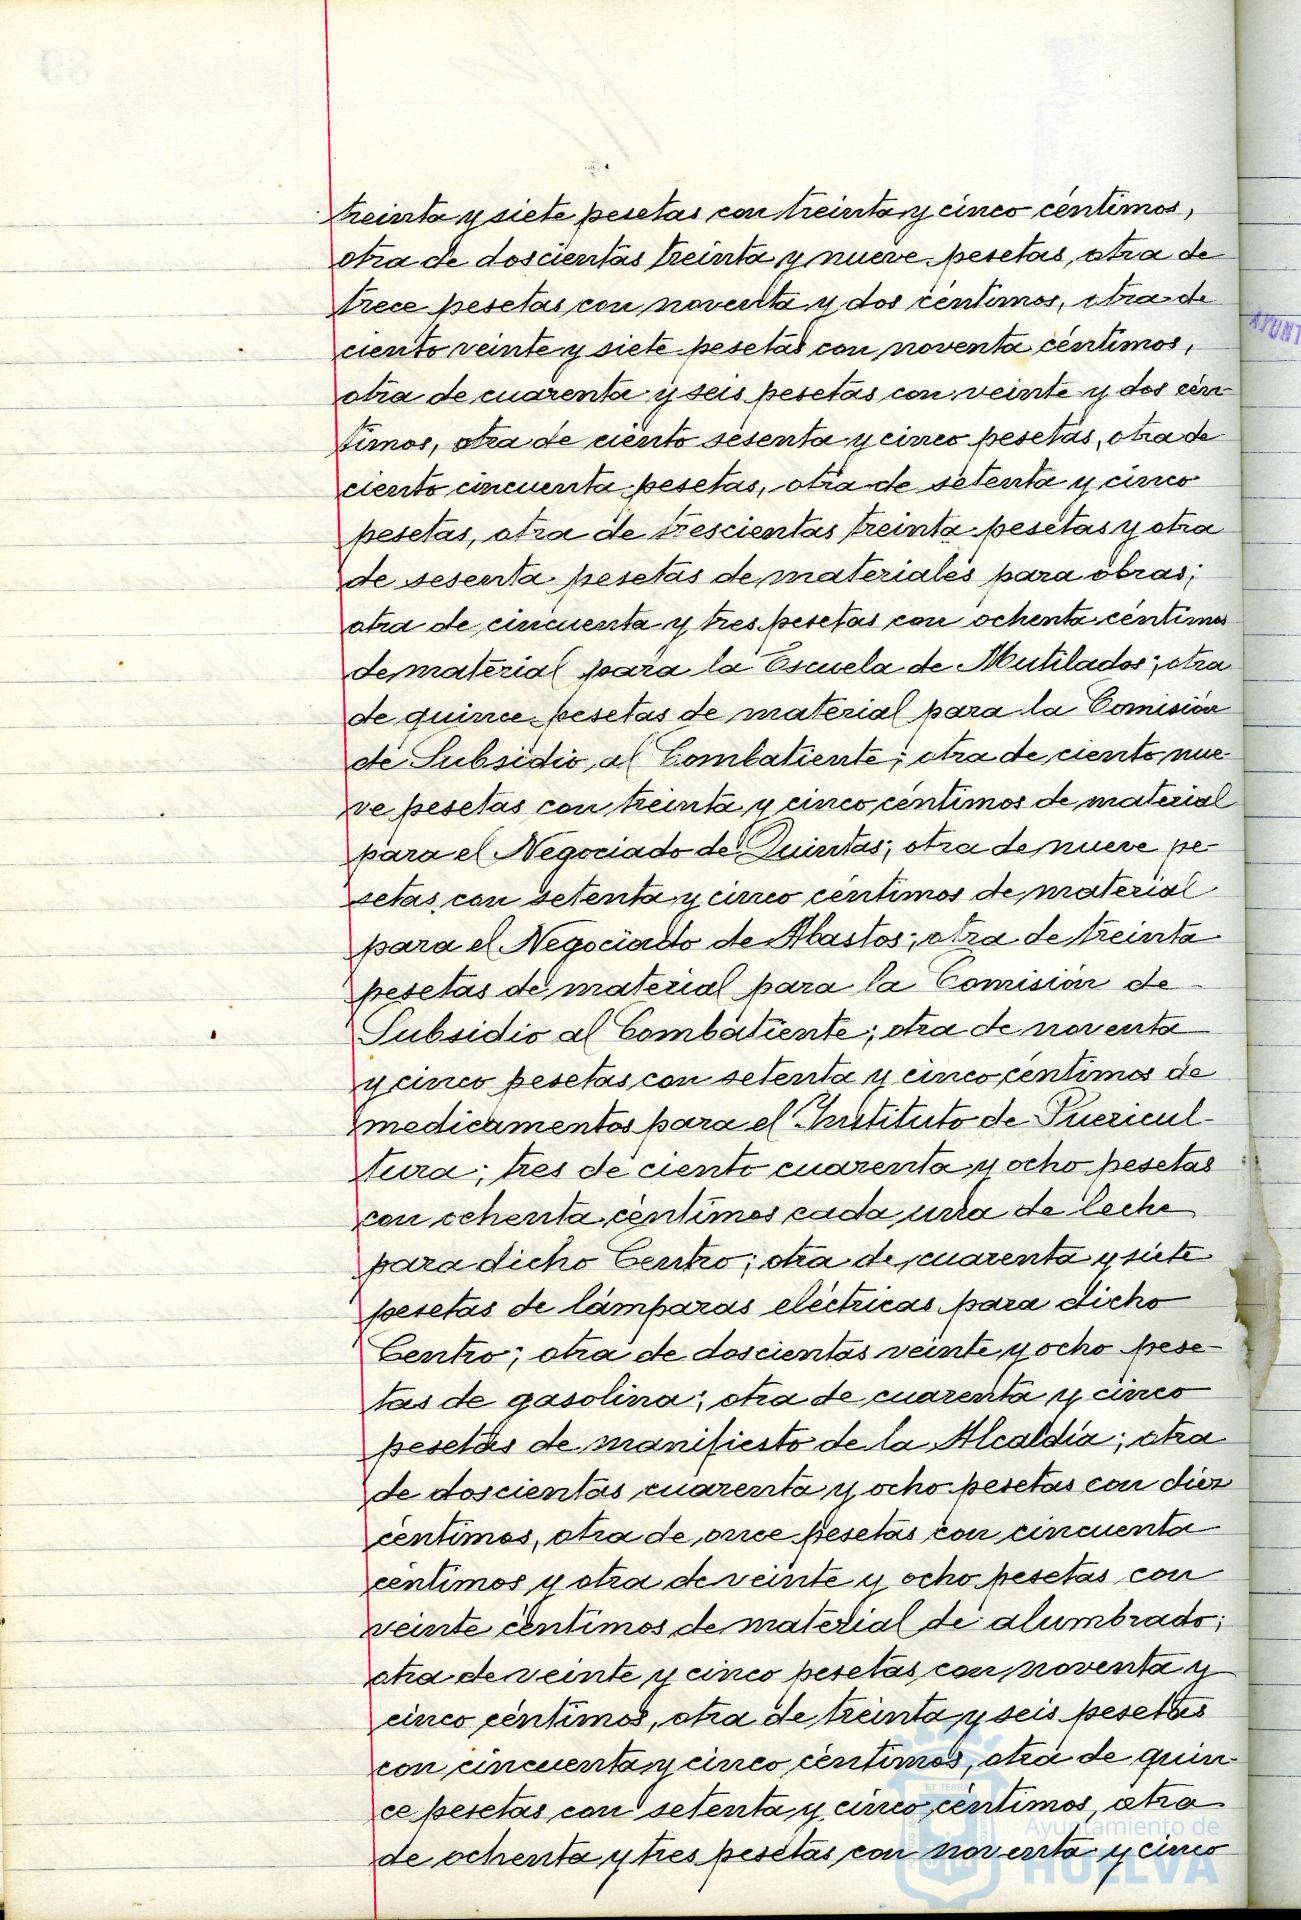 treinta y siete pesetas con treinta y cinco céntimos,
otra de doscientas treinta y nueve pesetas, otra de
trece pesetas con noventa y dos céntimos, otra de
ciento veinte y siete pesetas con noventa céntimos,
otra de cuarenta y seis pesetas con veinte y dos cén-
timos, otra de ciento sesenta y cinco pesetas, otra de
ciento cincuenta pesetas, otra de setenta y cinco
pesetas, otra de trescientas treinta pesetas y otra
de sesenta pesetas de materiales para obras;
otra de cincuenta y tres pesetas con ochenta céntimos
de material para la Escuela de Mutilados; otra
de quince pesetas de material para la Comisión
de Subsidio al Combatiente; otra de ciento nue-
ve pesetas con treinta y cinco céntimos de material
para el Negociado de Quintas; otra de nueve pe-
setas con setenta y cinco céntimos de material
para el Negociado de Abastos; otra de treinta
pesetas de material para la Comisión de
Subsidio al Combatiente; otra de noventa
y cinco pesetas con setenta y cinco céntimos de
medicamentos para el Instituto de Puericul-
tura; tres de ciento cuarenta y ocho pesetas
con ochenta céntimos cada una de leche
para dicho Centro; otra de cuarenta y siete
pesetas de lámparas eléctricas para dicho
Centro; otra de doscientas veinte y ocho pese-
tas de gasolina; otra de cuarenta y cinco
pesetas de manifiesto de la Alcaldía; otra
de doscientas cuarenta y ocho pesetas con diez
céntimos, otra de once pesetas con cincuenta
céntimos y otra de veinte y ocho pesetas con
veinte céntimos de material de alumbrado;
otra de veinte y cinco pesetas con noventa y
cinco céntimos, otra de treinta y seis pesetas
con cincuenta y cinco céntimos, otra de quin-
ce pesetas con setenta y cinco céntimos, otra
de ochenta y tres pesetas con noventa y cinco
Ayuntamiento de
HUELVA